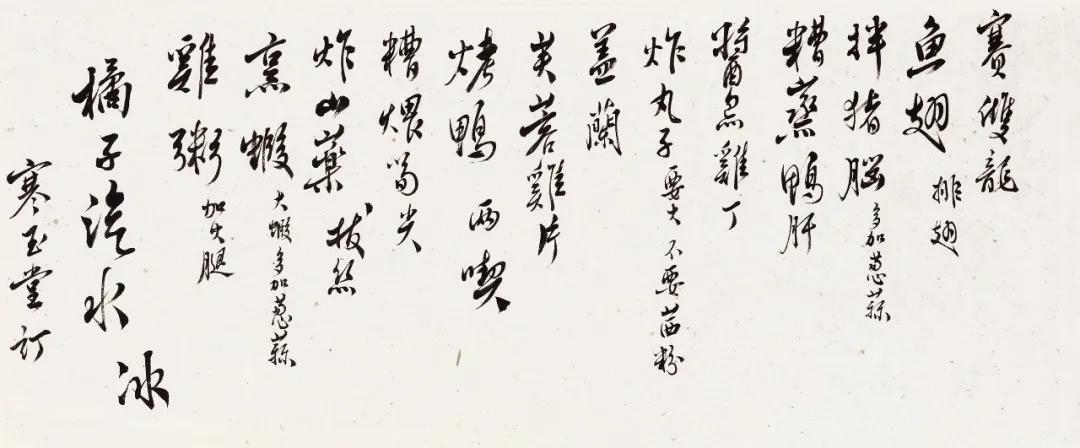 賽雙龍
魚翅 排翅
拌猪腦 多加蔥蒜
糟蒸鴨肝
醬魚雞丁
炸丸子 要大 不要茴粉
蓋蘭
芙蓉雞片
烤鴨 兩喫
糟煨筍尖
炸山藥 拔丝
烹蝦 大蝦多加蔥蒜
雞粥 加火腿
橘子汽水 冰
寒玉堂訂